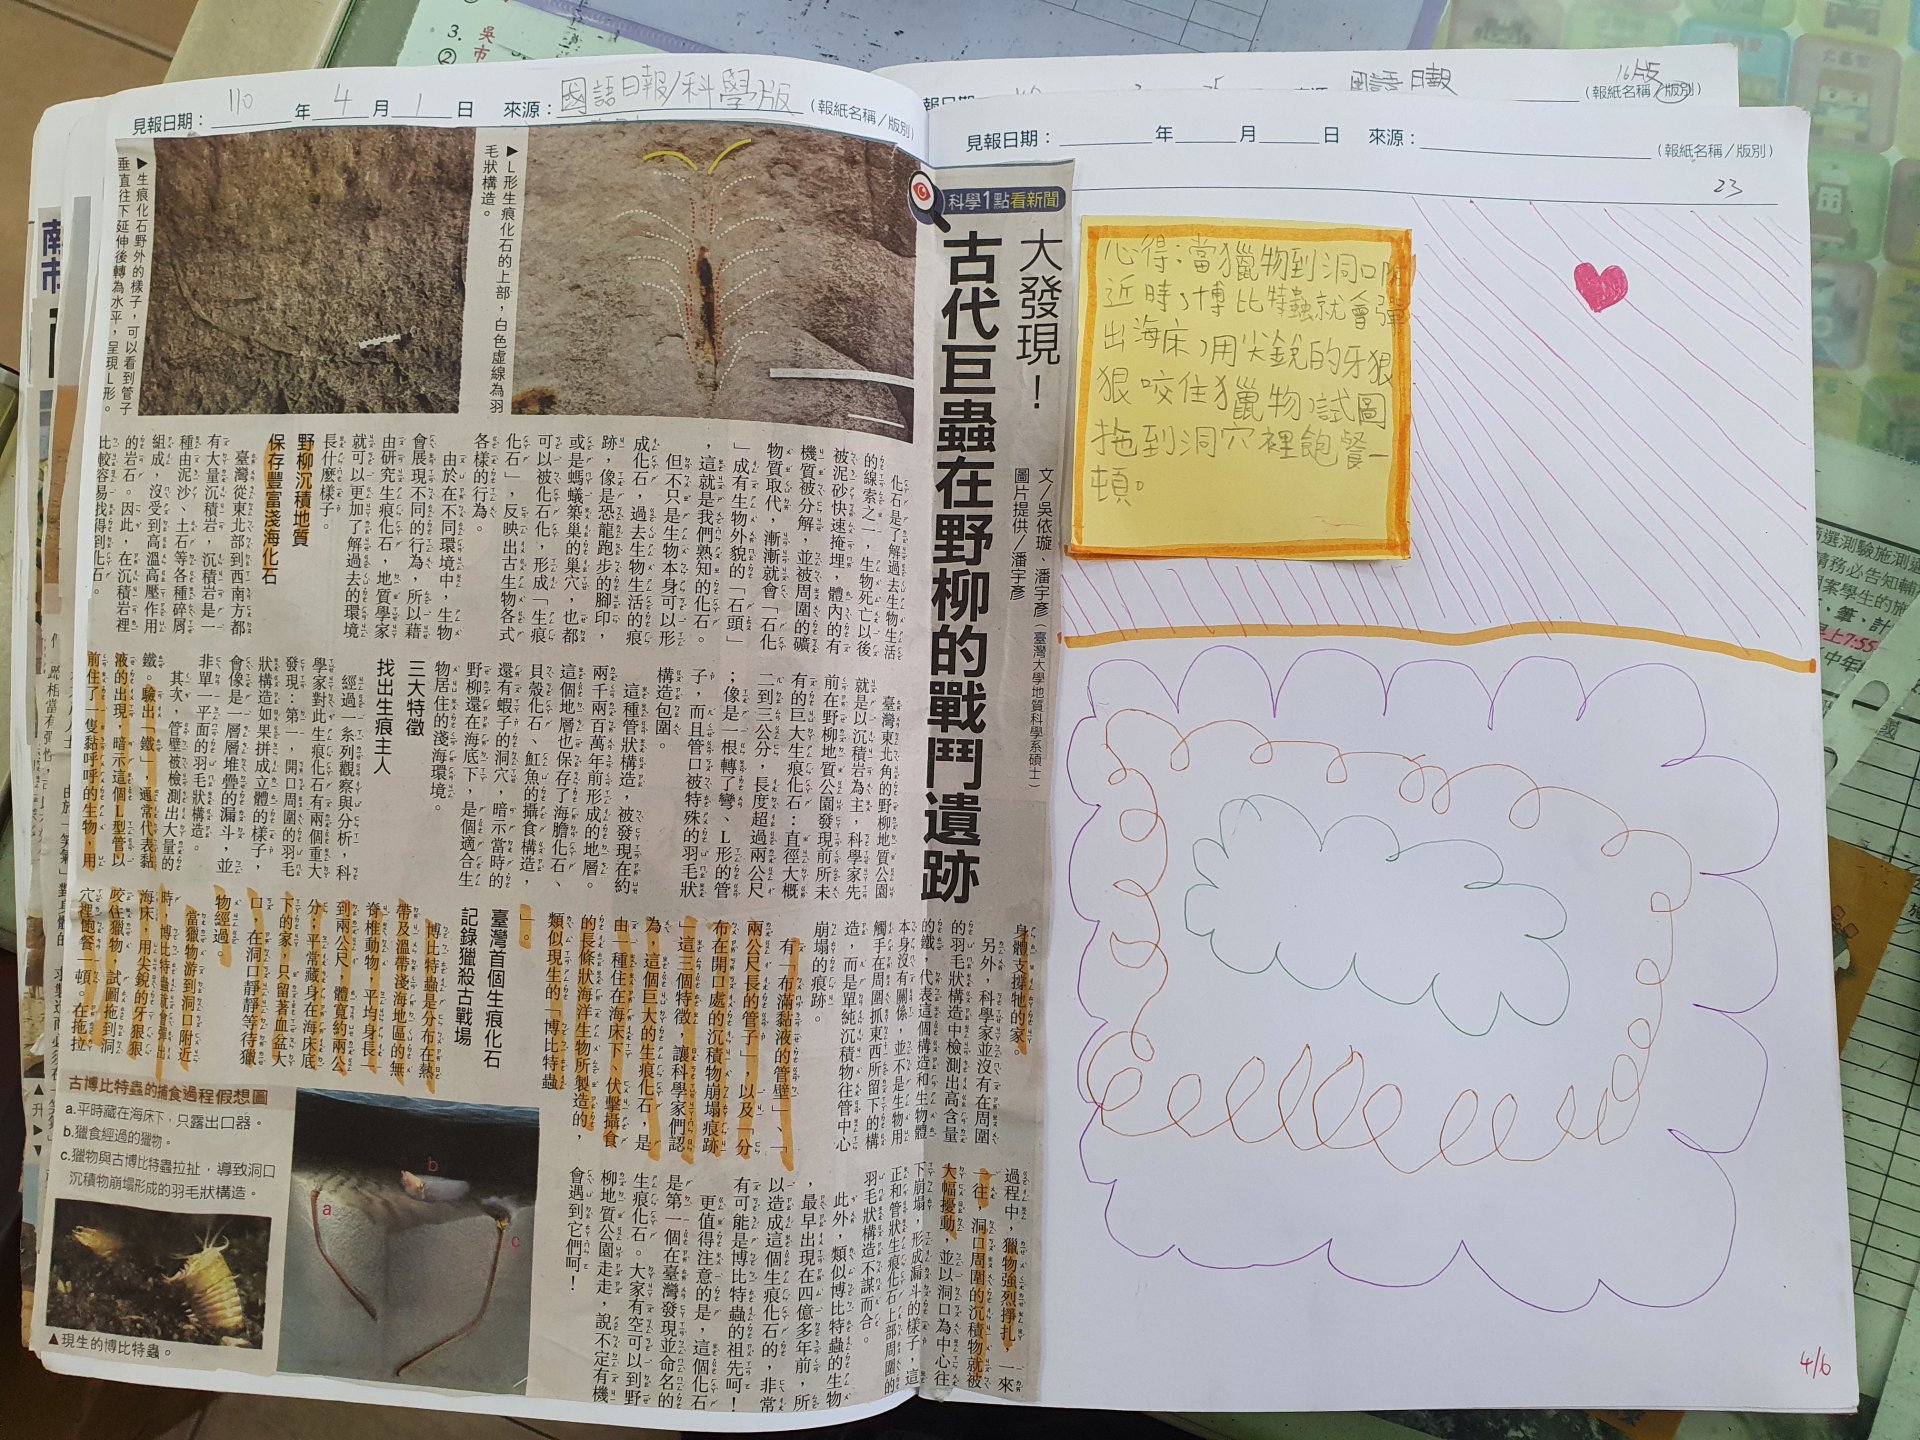 110年4月1日 來源：國語日報/科學版(報紙名稱／版別)
見報日期：
▶生痕化石野外的樣子，可以看到管子
垂直往下延伸後轉為水平，呈現L形。
▶L形生痕化石的上部，白色虛線為羽
毛狀構造。
科學1點看新聞
大發現！
古代巨蟲在野柳的戰鬥遺跡
文╱吳依璇、潘宇彥（臺灣大學地質科學系碩士）
圖片提供╱潘宇彥
化石是了解過去生物生活
的線索之一，生物死亡以後
被泥砂快速掩埋，體內的有
機質被分解，並被周圍的礦
物質取代，漸漸就會「石化
」成有生物外貌的「石頭」
，這就是我們熟知的化石。
但不只是生物本身可以形
成化石，過去生物生活的痕
跡，像是恐龍跑步的腳印，
或是螞蟻築巢的巢穴，也都
可以被化石化，形成「生痕
化石」，反映出古生物各式
各樣的行為。
由於在不同環境中，生物
會展現不同的行為，所以藉
由研究生痕化石，地質學家
就可以更加了解過去的環境
長什麼樣子。
野柳沉積地質
保存豐富淺海化石
臺灣從東北部到西南方都
有大量沉積岩，沉積岩是一
種由泥沙、土石等各種碎屑
組成，沒受到高溫高壓作用
的岩石。因此，在沉積岩裡
比較容易找得到化石。
臺灣東北角的野柳地質公園
就是以沉積岩為主，科學家先
前在野柳地質公園發現前所未
有的巨大生痕化石：直徑大概
二到三公分，長度超過兩公尺
；像是一根轉了彎、L形的管
子，而且管口被特殊的羽毛狀
構造包圍。
這種管狀構造，被發現在約
兩千兩百萬年前形成的地層。
這個地層也保存了海膽化石、
貝殼化石、魟魚的攝食構造，
還有蝦子的洞穴，暗示當時的
野柳還在海底下，是個適合生
物居住的淺海環境。
三大特徵
找出生痕主人
經過一系列觀察與分析，科
學家對此生痕化石有兩個重大
發現：第一，開口周圍的羽毛
狀構造如果拼成立體的樣子，
會像是一層層堆疊的漏斗，並
非單一平面的羽毛狀構造。
其次，管壁被檢測出大量的
鐵。驗出「鐵」，通常代表黏
液的出現，暗示這個L型管以
前住了一隻黏呼呼的生物，用
身體支撐牠的家。
另外，科學家並沒有在周圍
的羽毛狀構造中檢測出高含量
的鐵，代表這個構造和生物體
本身沒有關係，並不是生物用
觸手在周圍抓東西所留下的構
造，而是單純沉積物往管中心
崩塌的痕跡。
有「布滿黏液的管壁」、「
兩公尺長的管子」，以及「分
布在開口處的沉積物崩塌痕跡
」這三個特徵，讓科學家們認
為，這個巨大的生痕化石，是
由一種住在海床下、伏擊攝食
的長條狀海洋生物所製造的，
類似現生的「博比特蟲
」。
臺灣首個生痕化石
記錄獵殺古戰場
博比特蟲是分布在熱
帶及溫帶淺海地區的無
脊椎動物，平均身長一
到兩公尺，體寬約兩公
分；平常藏身在海床底
下的家，只留著血盆大
口，在洞口靜靜等待獵
物經過。
當獵物游到洞口附近
時，博比特蟲就會彈出
海床，用尖銳的牙狠狠
咬住獵物，試圖拖到洞
穴裡飽餐一頓。在拖拉
過程中，獵物強烈掙扎，一來
一往，洞口周圍的沉積物就被
大幅擾動，並以洞口為中心往
下崩塌，形成漏斗的樣子，這
正和管狀生痕化石上部周圍的
羽毛狀構造不謀而合。
此外，類似博比特蟲的生物
，最早出現在四億多年前，所
以造成這個生痕化石的，非常
有可能是博比特蟲的祖先呵！
更值得注意的是，這個化石
是第一個在臺灣發現並命名的
生痕化石。大家有空可以到野
柳地質公園走走，說不定有機
會遇到它們呵！
古博比特蟲的捕食過程假想圖
a.平時藏在海床下，只露出口器。
b.獵食經過的獵物。
c.獵物與古博比特蟲拉扯，導致洞口
沉積物崩塌形成的羽毛狀構造。
a
b
c
▲現生的博比特蟲。
國語日報
16版
(報紙名稱／版別)
見報日期：年月日 來源：(報紙名稱／版別)
23
心得：當獵物到洞口附
近時，博比特蟲就會彈
出海床，用尖銳的牙狠
狠咬住獵物，試圖
拖到洞穴裡飽餐一
頓。
4/6